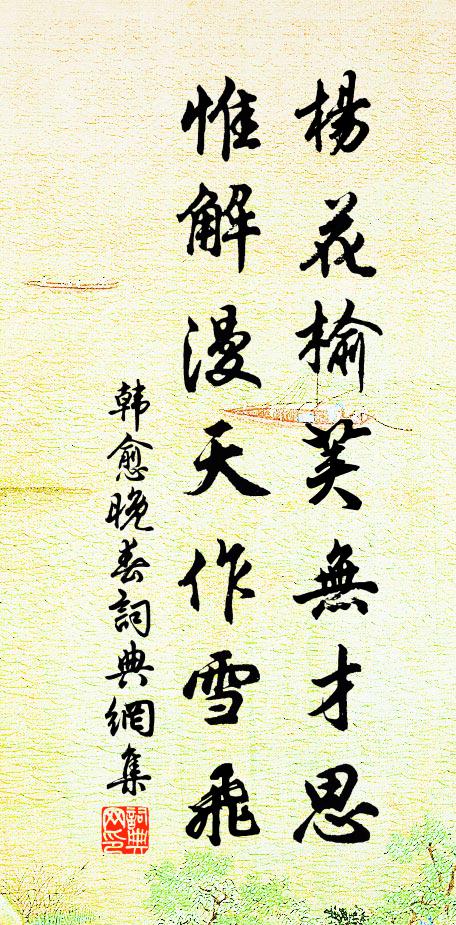 楊花榆芙無才思
惟解漫天作雪飛
韩愈晚春詞典網集
詞典网印